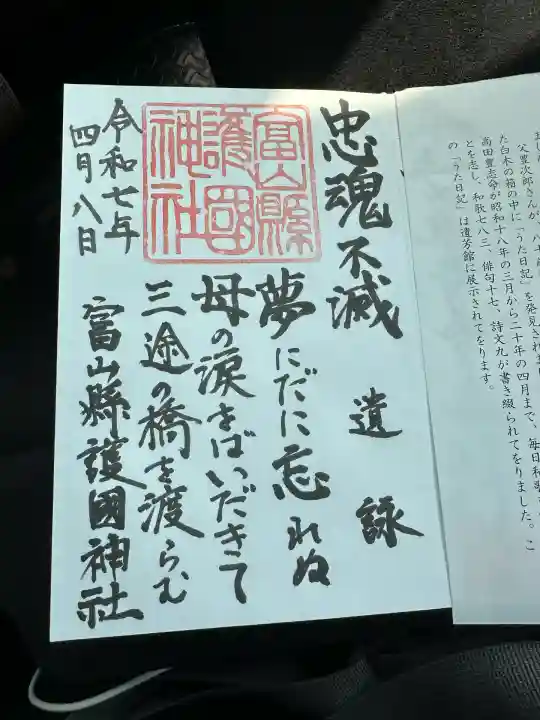 父豊次郎さんが、八十
た白木の箱の中に「うた日記」を発見されまし
高田豊志命が昭和十八年の三月から二十年の四月まで、毎日和歌
とを志し、和歌七八三、俳句十七、詩文九が書き綴られてをりました。こ
の「うた日記」は遺芳館に展示されてをります。
忠魂不滅 遺詠
夢にだに忘れぬ
母の涙をばいだきて
三途の橋を渡らむ
富山縣護國神社
富山縣
護國
神社
令和七年
四月八日